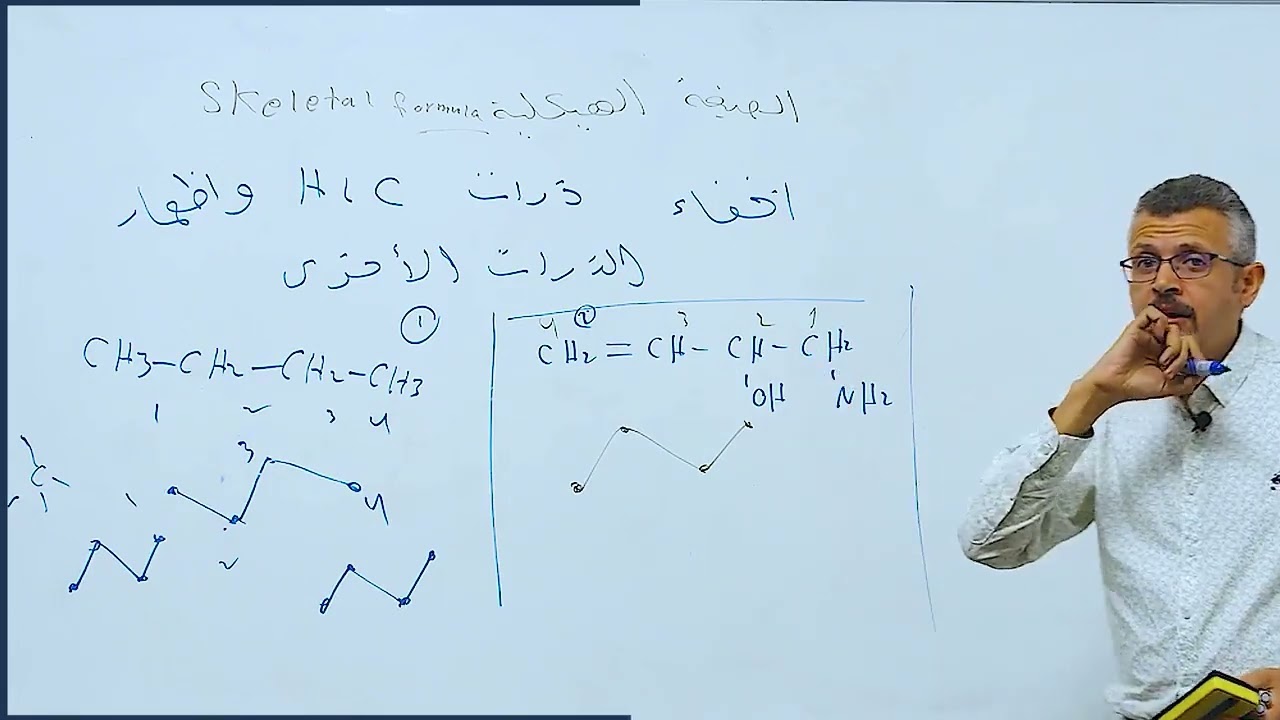 Skeletal formula الصيغة الهيكلية
اخفاء ذرات H, C واظهار
الذرات الأخرى
①
CH3-CH2-CH2-CH3
1 2 3 4
3
C
1
4
2
②
4 3 2 1
CH2=CH-CH-CH2
OH NH2